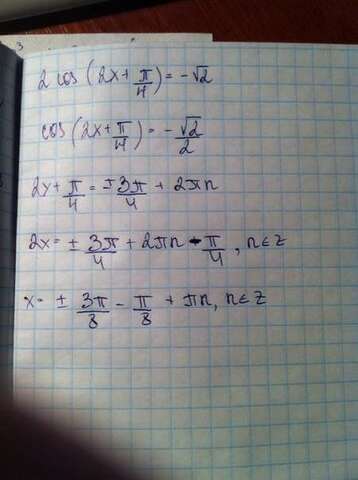 3
2 cos (2x + π/4) = -√2
cos (2x + π/4) = -√2/2
2x + π/4 = ± 3π/4 + 2πn
2x = ± 3π/4 + 2πn - π/4, n∈z
x = ± 3π/8 - π/8 + πn, n∈z